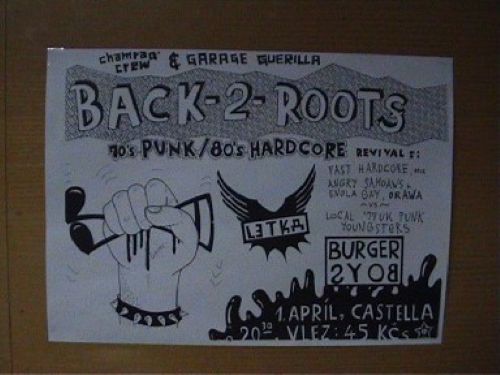 champag'
crew & GARAGE GUERILLA
BACK-2-ROOTS
70's PUNK/80's HARDCORE REVIVAL S:
FAST HARDCORE,
ANGRY SAMOANS &
ENOLA GAY, ORAWA
-VS-
LOCAL '77 UK PUNK
YOUNGSTERS
LETKA
BURGER
BOYS
1. APRÍL, CASTELLA
20 30 VLEZ: 45 KčS